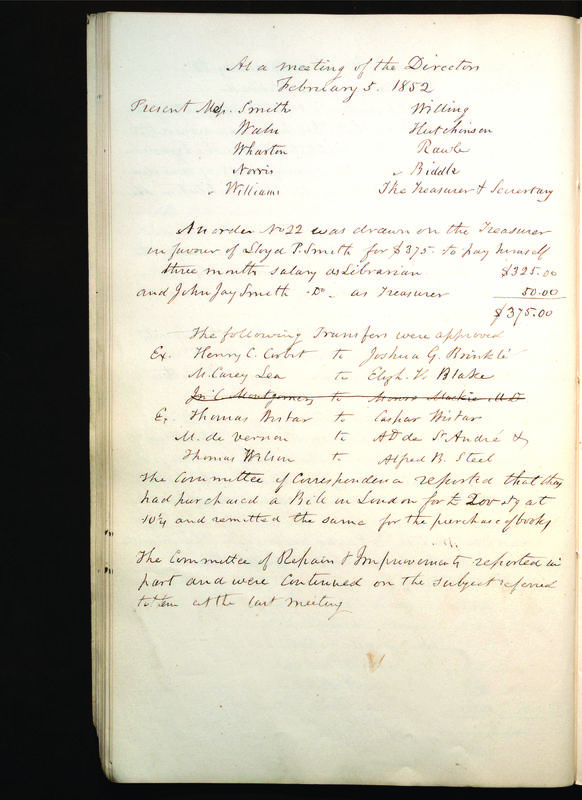 At a meeting of the Directors
February 5. 1852
Present Mess. Smith Willing
Waln Hutchinson
Wharton Rawle
Norris Biddle
Williams The Treasurer & Secretary
An order No 22 was drawn on the Treasurer
in favour of Lloyd P. Smith for $375. to pay himself
three month salary as Librarian $325.00
and John Jay Smith -Do- as Treasurer 50.00
$375.00
The following Transfers were approved
Ex. Henry C. Corbit to Joshua G. Brinklé
M. Carey Lea to Eligh. V. Blake
Jn. C. Montgomery to Monro Mackie M D
Ex. Thomas Wistar to Caspar Wistar
M. de Vernon to Ad. de St. André &
Thomas Wilson to Alfred B. Steel
The Committee of Correspondence reported that they
had purchased a Bill on London for £ 200 at
10¼ and remitted the same for the purchase of books
The Committee of Repairs & Improvements reported in
part and were continued on the subject referred
to them at the last meeting